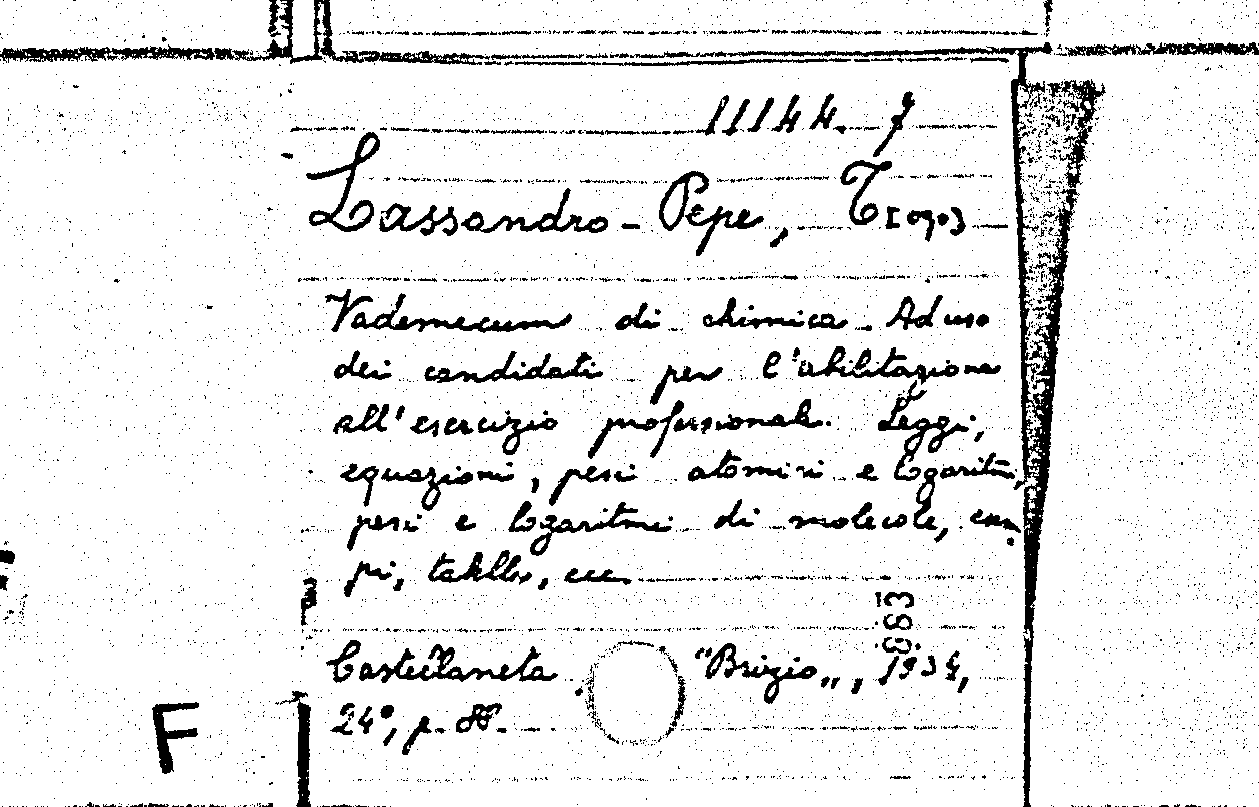 11144. 7
Lassandro-Pepe, T[ogo]
Vademecum di chimica. Ad uso
dei candidati per l'abilitazione
all'esercizio professionale. Leggi,
equazioni, pesi atomici e logaritmi,
pesi e logaritmi di molecole, cam
pi, tabelle, ecc.
683
Castellaneta "Brizio", 1934,
24°, p. 88.
F